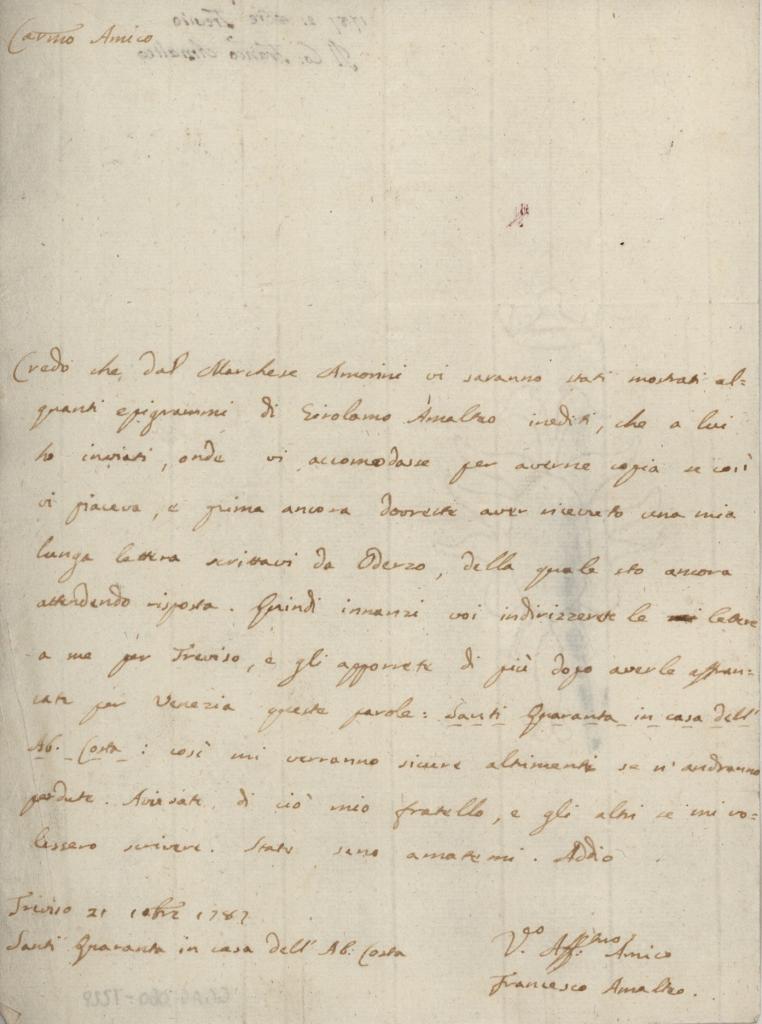 Carmo Amico
Credo che dal Marchese Amorini vi saranno stati mostrati al=
quanti epigrammi di Girolamo Amalteo inediti, che a lui
ho inviati, onde vi accomodasse per averne copia se così
vi piaceva, e prima ancora dovreste aver ricevuto una mia
lunga lettera scrittavi da Oderzo, della quale sto ancora
attendendo risposta. Quindi innanzi voi indirizzerete le lettere
a me per Treviso, e gli apporrete di più dopo averle affran=
cate per Venezia queste parole: Santi Quaranta in casa dell'
Ab. Costa: così mi verranno sicure altrimenti se n'andranno
perdute. Avisate di ciò mio fratello, e gli altri se mi vo=
lessero scrivere. State sano amatemi. Addio
Treviso 21 1787
Santi Quaranta in casa dell' Ab. Costa
V.o Aff.mo Amico
Francesco Amalteo.